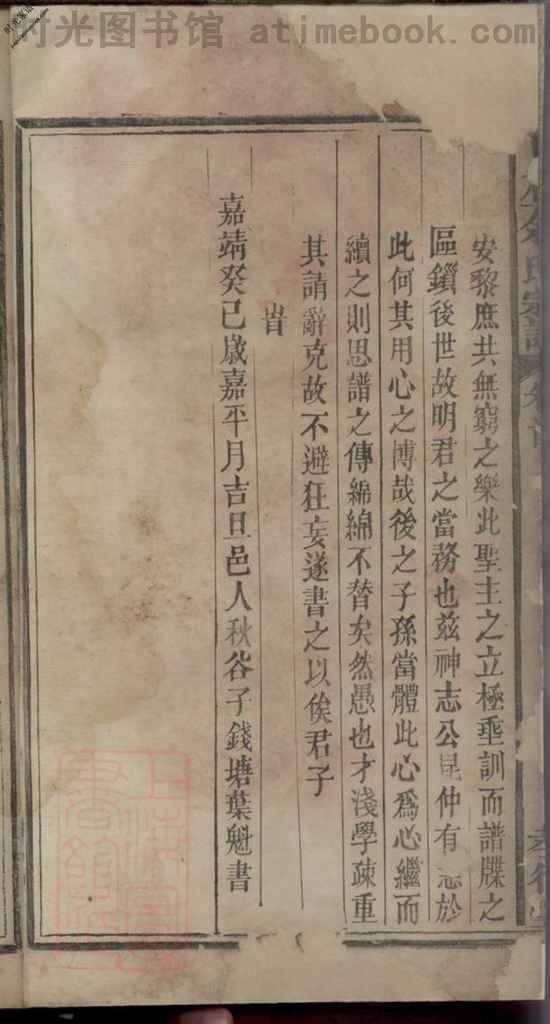 时光图书馆 atimebook.com
安黎庶共無窮之樂此聖主之立極垂訓而譜牒之
區鎖後世故明君之當務也茲神志公昆仲有志於
此何其用心之博哉後之子孫當體此心爲心繼而
續之則思譜之傳綿綿不替矣然愚也才淺學疎重
其請辭克故不避狂妄遂書之以俟君子
旹
嘉靖癸己歲嘉平月吉旦邑人秋谷子錢塘葉魁書
上海圖書館藏